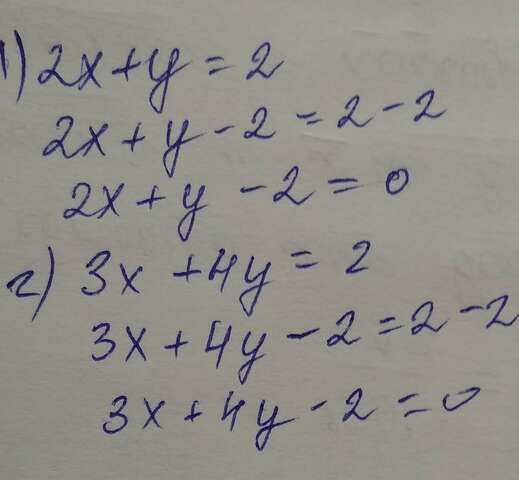 1) 2x + y = 2
2x + y - 2 = 2 - 2
2x + y - 2 = 0
2) 3x + 4y = 2
3x + 4y - 2 = 2 - 2
3x + 4y - 2 = 0